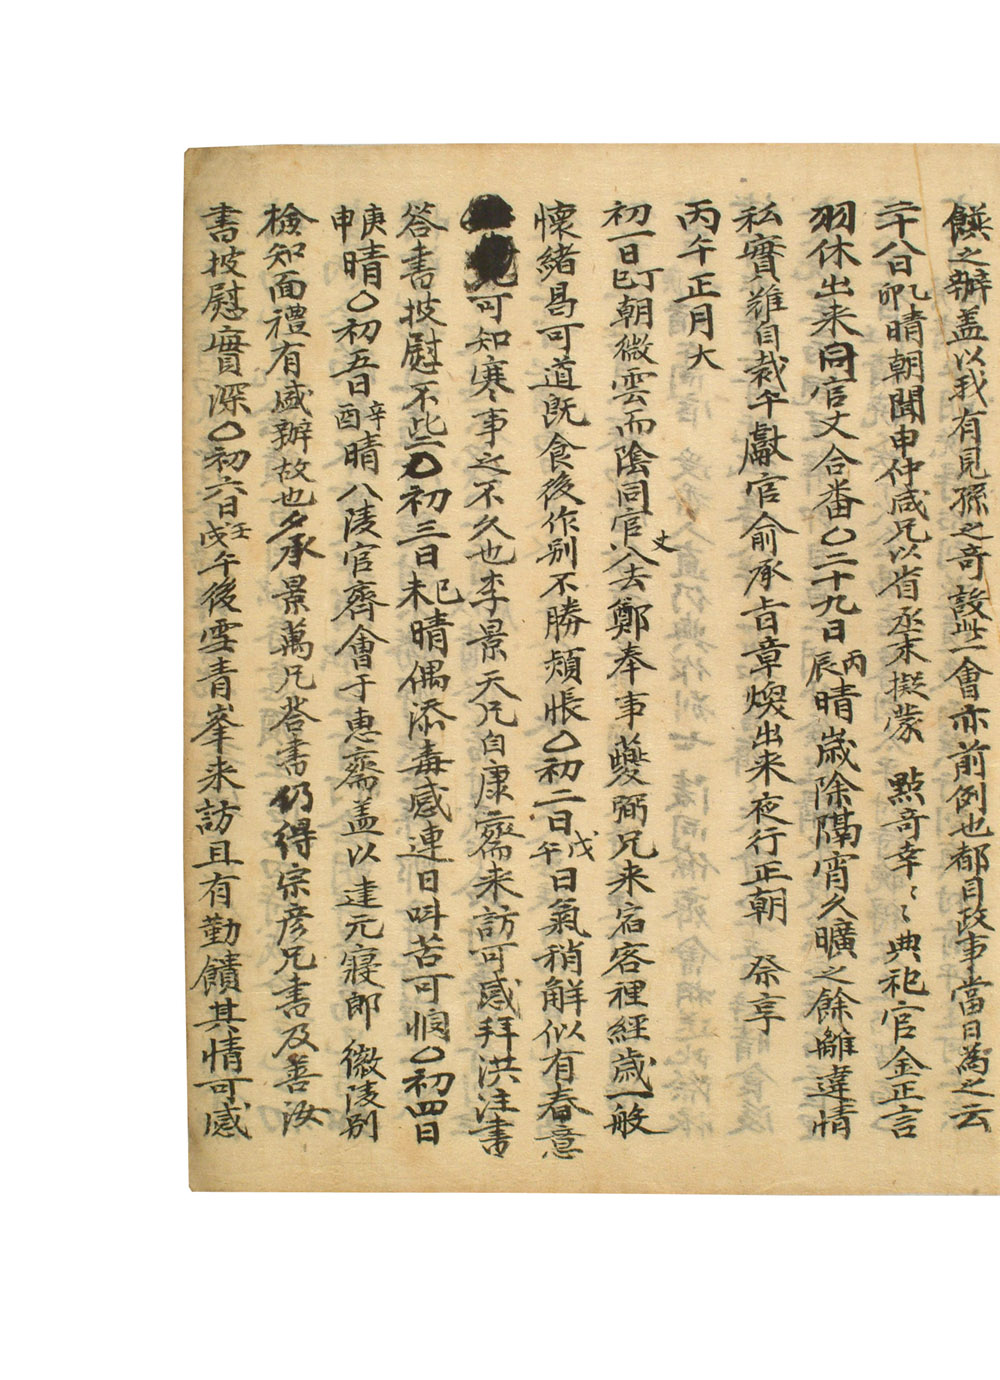 饌之辦盖以我有見孫之奇設此一會亦前例也都目政事當日為之云
二十八日乙卯晴朝聞申仲咸兄以省丞末擬蒙 點奇幸〻〻典祀官金正言
羽休出来同官丈合番○二十九日丙辰晴歲除隔宵久曠之餘離違情
私實難自裁午獻官俞承旨章煥出来夜行正朝 祭享
丙午正月大
初一日丁巳朝微雲而陰同官丈公去鄭奉事夔弼兄来宿客裡經歲一般
懷緒曷可道既食後作别不勝頻悵○初二日戊午日氣稍解似有春意
可知寒事之不久也李景天兄自康齋来訪可感拜洪注書
答書披慰不些○初三日己未晴偶添毒感連日呌苦可悶○初四日
庚申晴○初五日辛酉晴八陵官齊會于惠齋盖以建元寢郎 徽陵别
檢知面禮有盛辦故也夕承景萬兄答書仍得宗彦兄書及善汝
書披慰實深○初六日壬戌午後雪青峯来訪且有勤饋其情可感